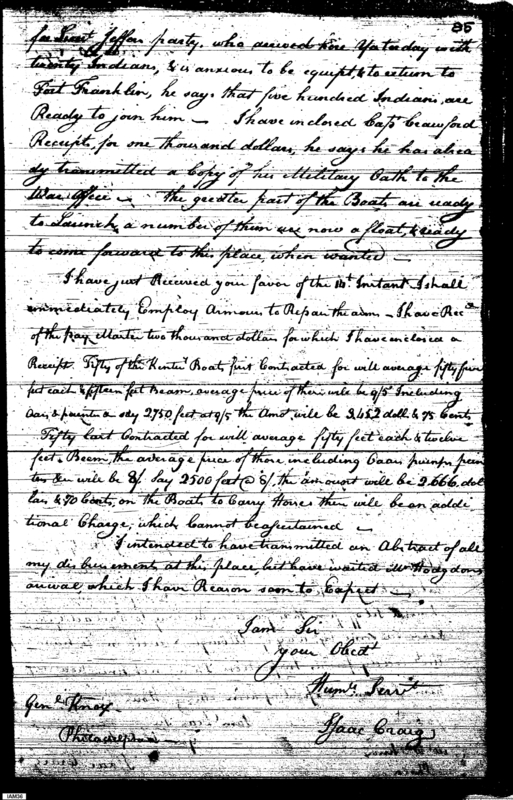 85
for Lieut Jeffers party, who arrived here Yesterday with
twenty Indians, & is anxious to be equipt, & to return to
Fort Franklin, he says that five hundred Indians, are
Ready to join him — I have inclosed Capt Crawford
Receipts, for one thousand dollars, he says he has alrea
dy transmitted a Copy of his Military Oath to the
War Office — the greater part of the Boats are ready
to Launch, a number of them are now a float, & ready
to come forward to this place when wanted —
I have just Received your favor of the 14t Instant I shall
immediately Employ Armours to Repair the arms — I have Recd
of the pay Master two thousand dollars for which I have inclosed a
Receipt. Fifty of the Kentuy Boats first Contracted for will average fifty five
feet each & fifteen feet Beam, average price of them will be 9/5 Including
Oars, & say 2,750 feet at 9/5 the Amot will be 3,452 doll & 75 Cents
Fifty last Contracted for will average fifty feet each & twelve
feet Beem, the average price of those including Oars pumps pain
ters &c will be 8/ Say 2500 feet @ 8/, the amount will be 2.666. dol
lars & 70 Cents, on the Boats to Carry Horses there will be an addi
tional Charge, which Cannot be ascertained —
I intended to have transmitted an Abstract of all
my disbursements at this place, but have waited Mr Hodgdons
arrival, which I have Reason soon to Expect —
I am Sir
your Obedt
Humle Servt
Isaac Craig
Genl Knox
Philadelphia
IAM36